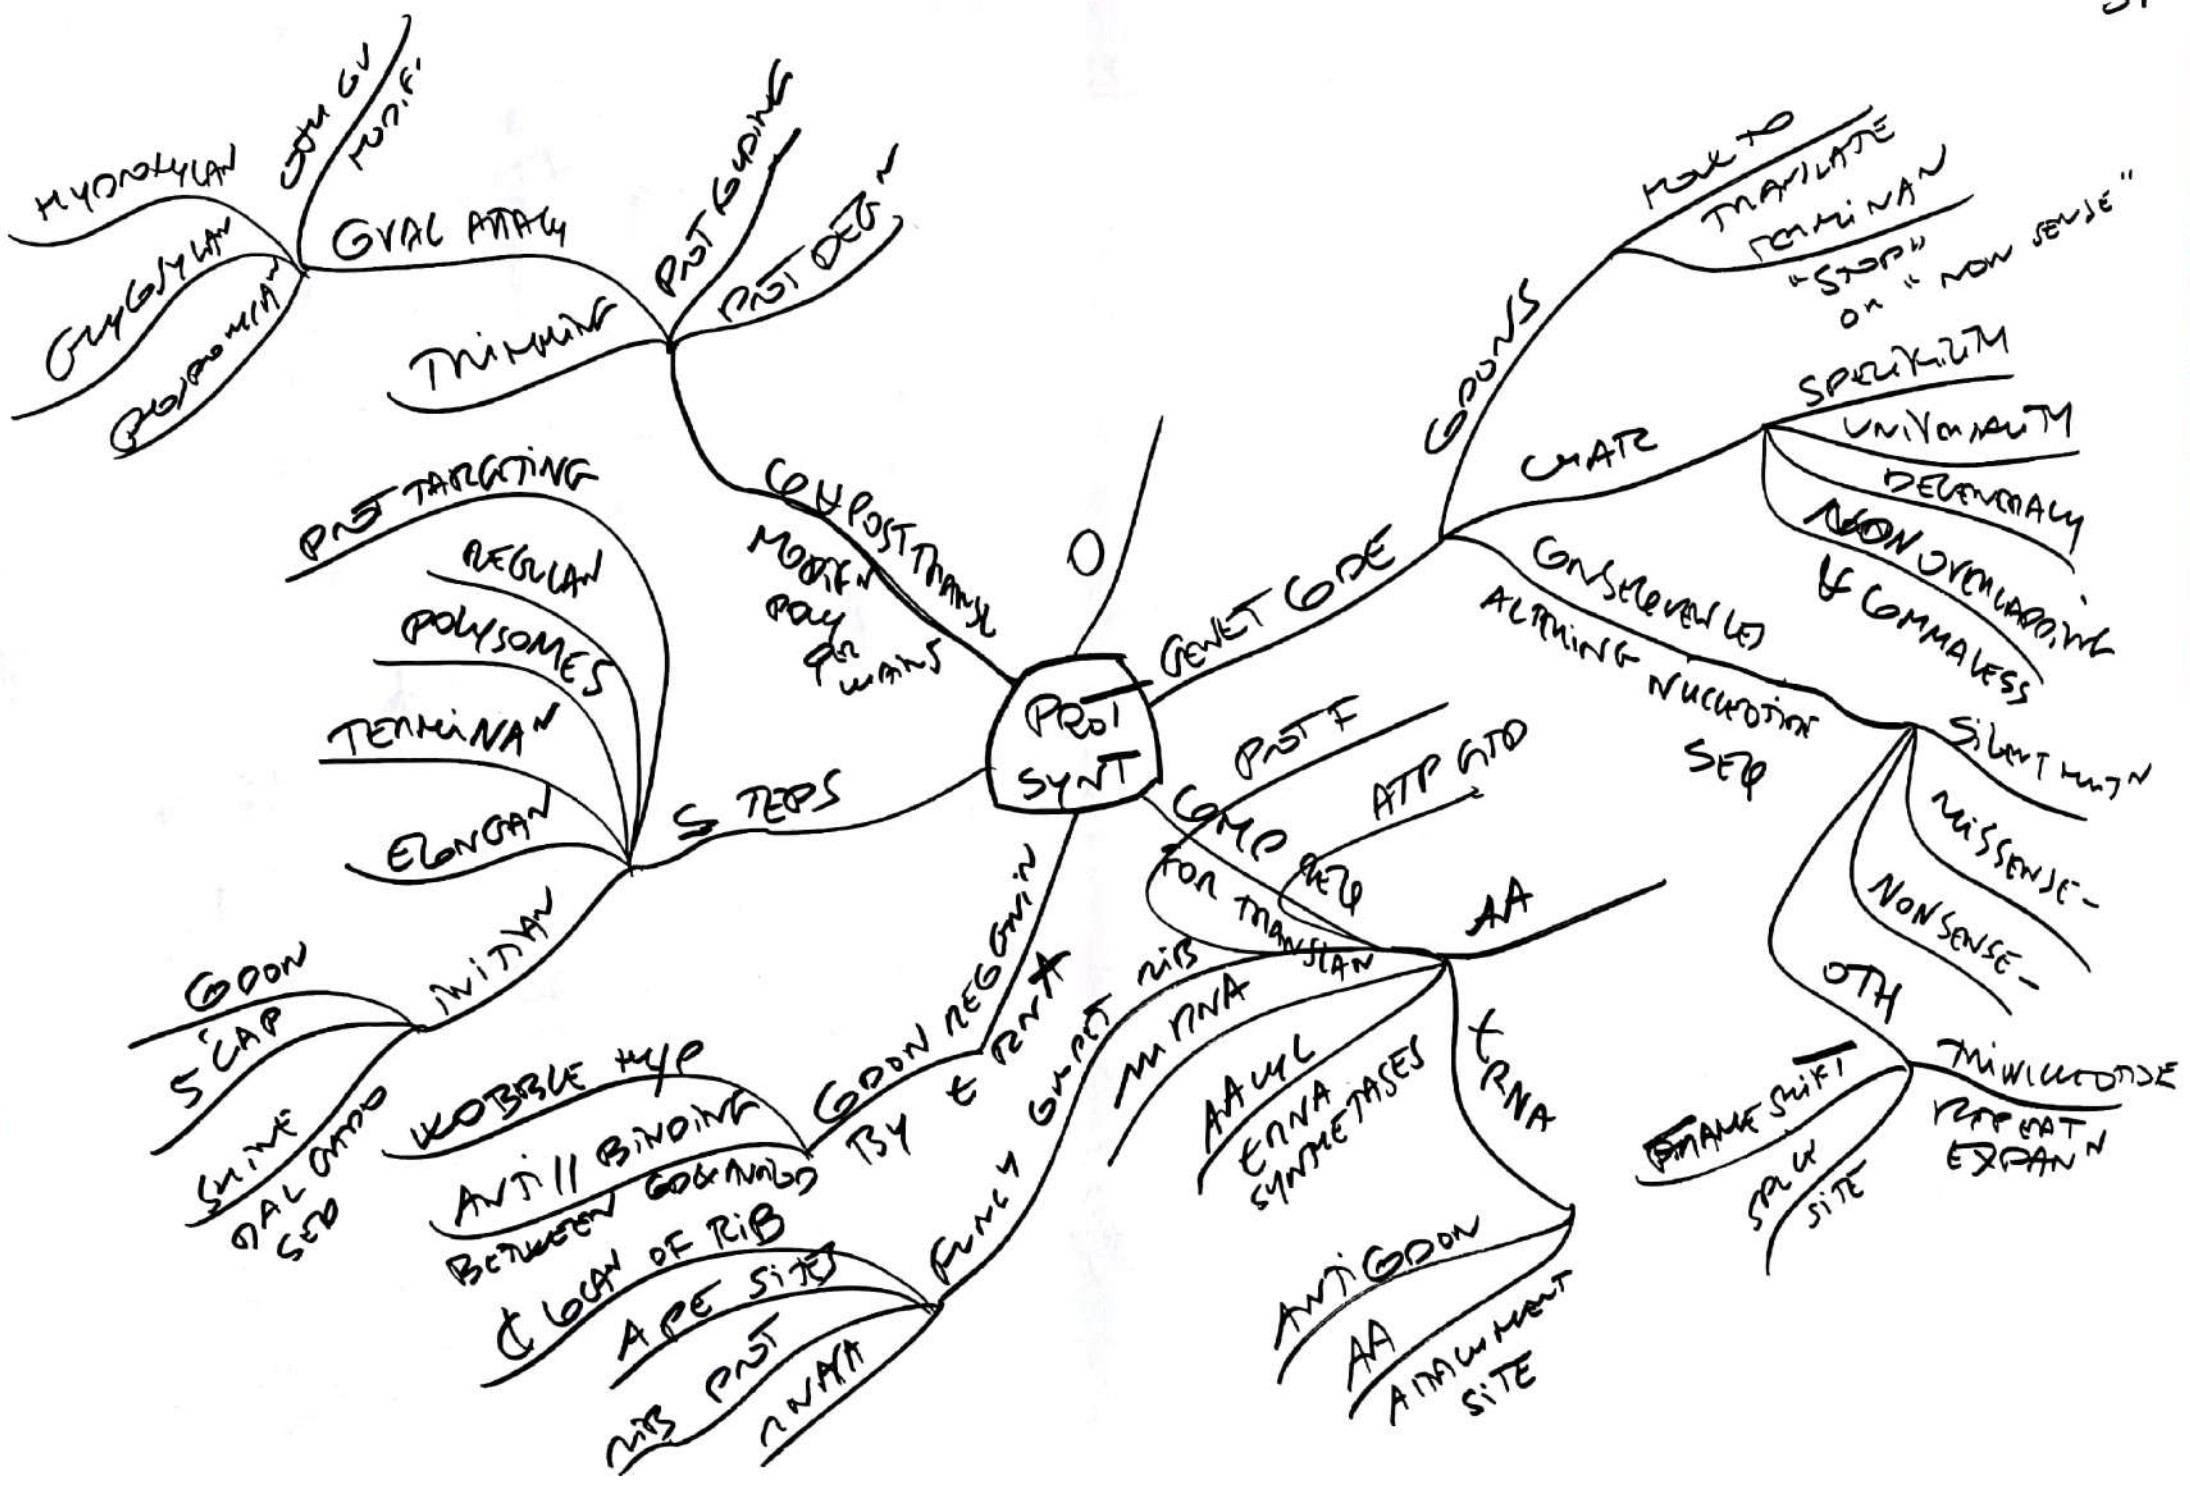 PROT
SYNT
O
GENET CODE
CODONS
HOW TO
TRANSLATE
TERMINAN
"STOP"
OR "NON SENSE"
SPECIFICITY
UNIVERSALITY
DEGENERACY
NON OVERLAPPING
& COMMALESS
CONSEQUENCES
ALTERING NUCLEOTIDE
SEQ
SILENT MUTN
MISSENSE-
NONSENSE-
OTH
TRINUCLEOTIDE
REPEAT
EXPANN
FRAME SHIFT
SPLICE
SITE
COMP REQ
FOR TRANSLAN
PROT F
ATP GTP
AA
tRNA
ANTICODON
AA
ATTACHMENT
SITE
AACYL
tRNA
SYNTHETASES
mRNA
FUNCLY COMPLET RIB
¢ LOCAN OF RIB
APE SITES
RIB PROT
RNA
CODON RECOGNIN
BY tRNA
WOBBLE HYP
ANTI || BINDING
BETWEEN
STEPS
INITIAN
CODON
5'CAP
SHINE
DALGARNO
SEQ
ELONGAN
TERMINAN
POLYSOMES
REGULAN
PROT TARGETING
CO & POST TRANSL
MODIFN
POLY
PEP
CHAINS
TRIMMING
PROT FOLDING
PROT DEGN
COVAL ATTACH
HYDROXYLAN
GLYCOSYLAN
PHOSPHORYLAN
OTH COV
MODIF